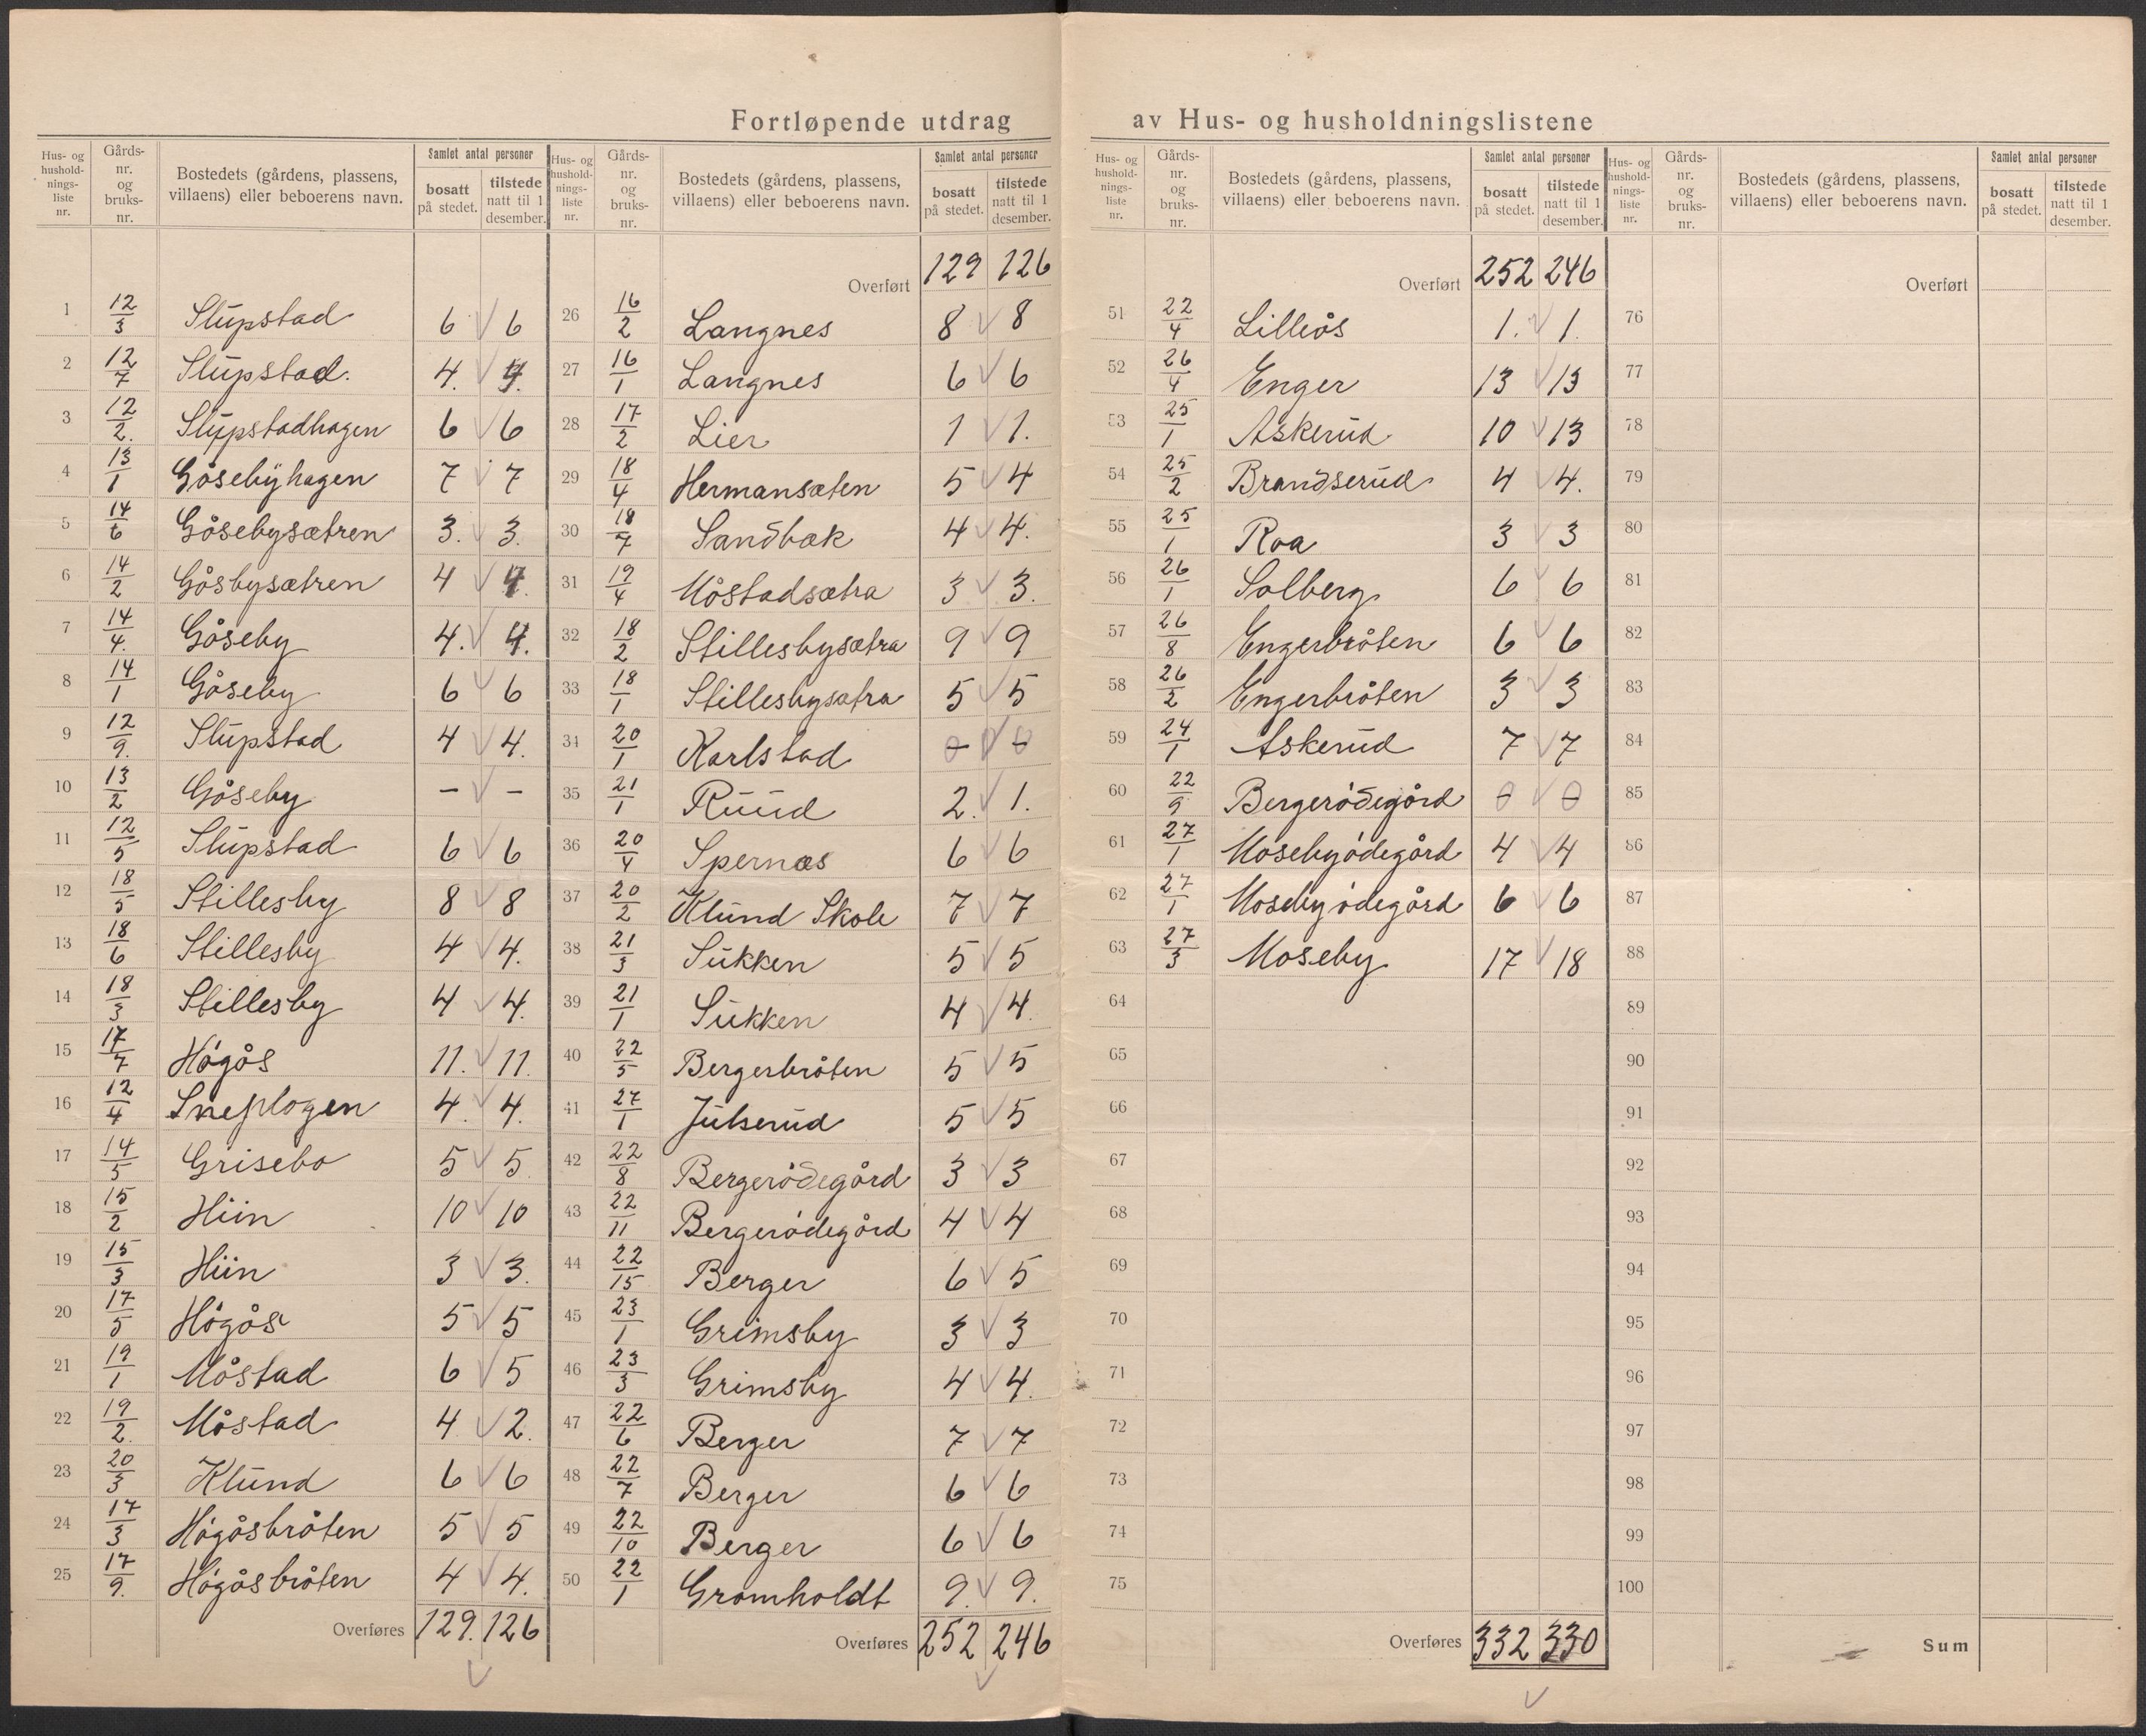 Fortløpende utdrag av Hus- og husholdningslistene
Hus- og hushold-nings-liste nr. | Gårds-nr. og bruks-nr. | Bostedets (gårdens, plassens, villaens) eller beboerens navn. | Samlet antal personer | bosatt på stedet. | tilstede natt til 1 desember.
1 12/3 Slupstad 6 6
2 12/7 Slupstad. 4. 4.
3 12/2. Slupstadhagen 6 6
4 13/1 Gåsebyhagen 7 7
5 14/6 Gåsebysætren 3. 3.
6 14/2 Gåsbysætren 4 4.
7 14/4. Gåseby 4. 4.
8 14/1 Gåseby 6 6
9 12/9. Slupstad 4 4.
10 13/2 Gåseby - -
11 12/5 Slupstad 6 6
12 18/5 Stillesby 8 8
13 18/6 Stillesby 4 4.
14 18/3 Stillesby 4 4.
15 17/7 Høgås 11. 11.
16 12/4 Sneplogen 4. 4.
17 14/5 Grisebo 5 5.
18 15/2 Hiin 10 10
19 15/3 Hiin 3 3.
20 17/5 Høgås 5 5
21 19/1 Måstad 6 5
22 19/2. Måstad 4 2.
23 20/3 Klund 6 6
24 17/3 Høgåsbråten 5 5
25 17/9. Høgåsbråten 4 4.
Overføres 129. 126
Hus- og hushold-nings-liste nr. | Gårds-nr. og bruks-nr. | Bostedets (gårdens, plassens, villaens) eller beboerens navn. | Samlet antal personer | bosatt på stedet. | tilstede natt til 1 desember.
Overført 129 126
26 16/2 Langnes 8 8
27 16/1 Langnes 6 6
28 17/2 Lier 1 1.
29 18/4 Hermansæten 5 4
30 18/7 Sandbæk 4 4.
31 19/4 Måstadsætra 3 3.
32 18/2 Stillesbysætra 9 9
33 18/1 Stillesbysætra 5 5
34 20/1 Karlstad 0 0
35 21/1 Ruud 2. 1.
36 20/4 Spernæs 6 6
37 20/2 Klund Skole 7 7
38 21/3 Sukken 5 5
39 21/1 Sukken 4 4.
40 22/5 Bergerbråten 5 5
41 27/1 Julserud 5 5
42 22/8 Bergerødegård 3 3
43 22/11 Bergerødegård 4 4
44 22/15 Berger 6 5
45 23/1 Grimsby 3 3
46 23/3 Grimsby 4 4.
47 22/6 Berger 7 7
48 22/7 Berger 6 6
49 22/10 Berger 6 6
50 22/1 Gromholdt 9. 9.
Overføres 252 246
Hus- og hushold-nings-liste nr. | Gårds-nr. og bruks-nr. | Bostedets (gårdens, plassens, villaens) eller beboerens navn. | Samlet antal personer | bosatt på stedet. | tilstede natt til 1 desember.
Overført 252 246
51 22/4 Lilleås 1. 1.
52 26/4 Enger 13 13
53 25/1 Askerud 10 13
54 25/2 Brandserud 4 4.
55 25/1 Roa 3 3
56 26/1 Solberg 6 6
57 26/8 Engerbråten 6 6
58 26/2 Engerbråten 3 3
59 24/1 Askerud 7 7
60 22/9 Bergerødegård 0 0
61 27/1 Mosebyødegård 4 4
62 27/1 Mosebyødegård 6 6
63 27/3 Moseby 17 18
64
65
66
67
68
69
70
71
72
73
74
75
Overføres 332 330
Hus- og hushold-nings-liste nr. | Gårds-nr. og bruks-nr. | Bostedets (gårdens, plassens, villaens) eller beboerens navn. | Samlet antal personer | bosatt på stedet. | tilstede natt til 1 desember.
Overført
76
77
78
79
80
81
82
83
84
85
86
87
88
89
90
91
92
93
94
95
96
97
98
99
100
Sum